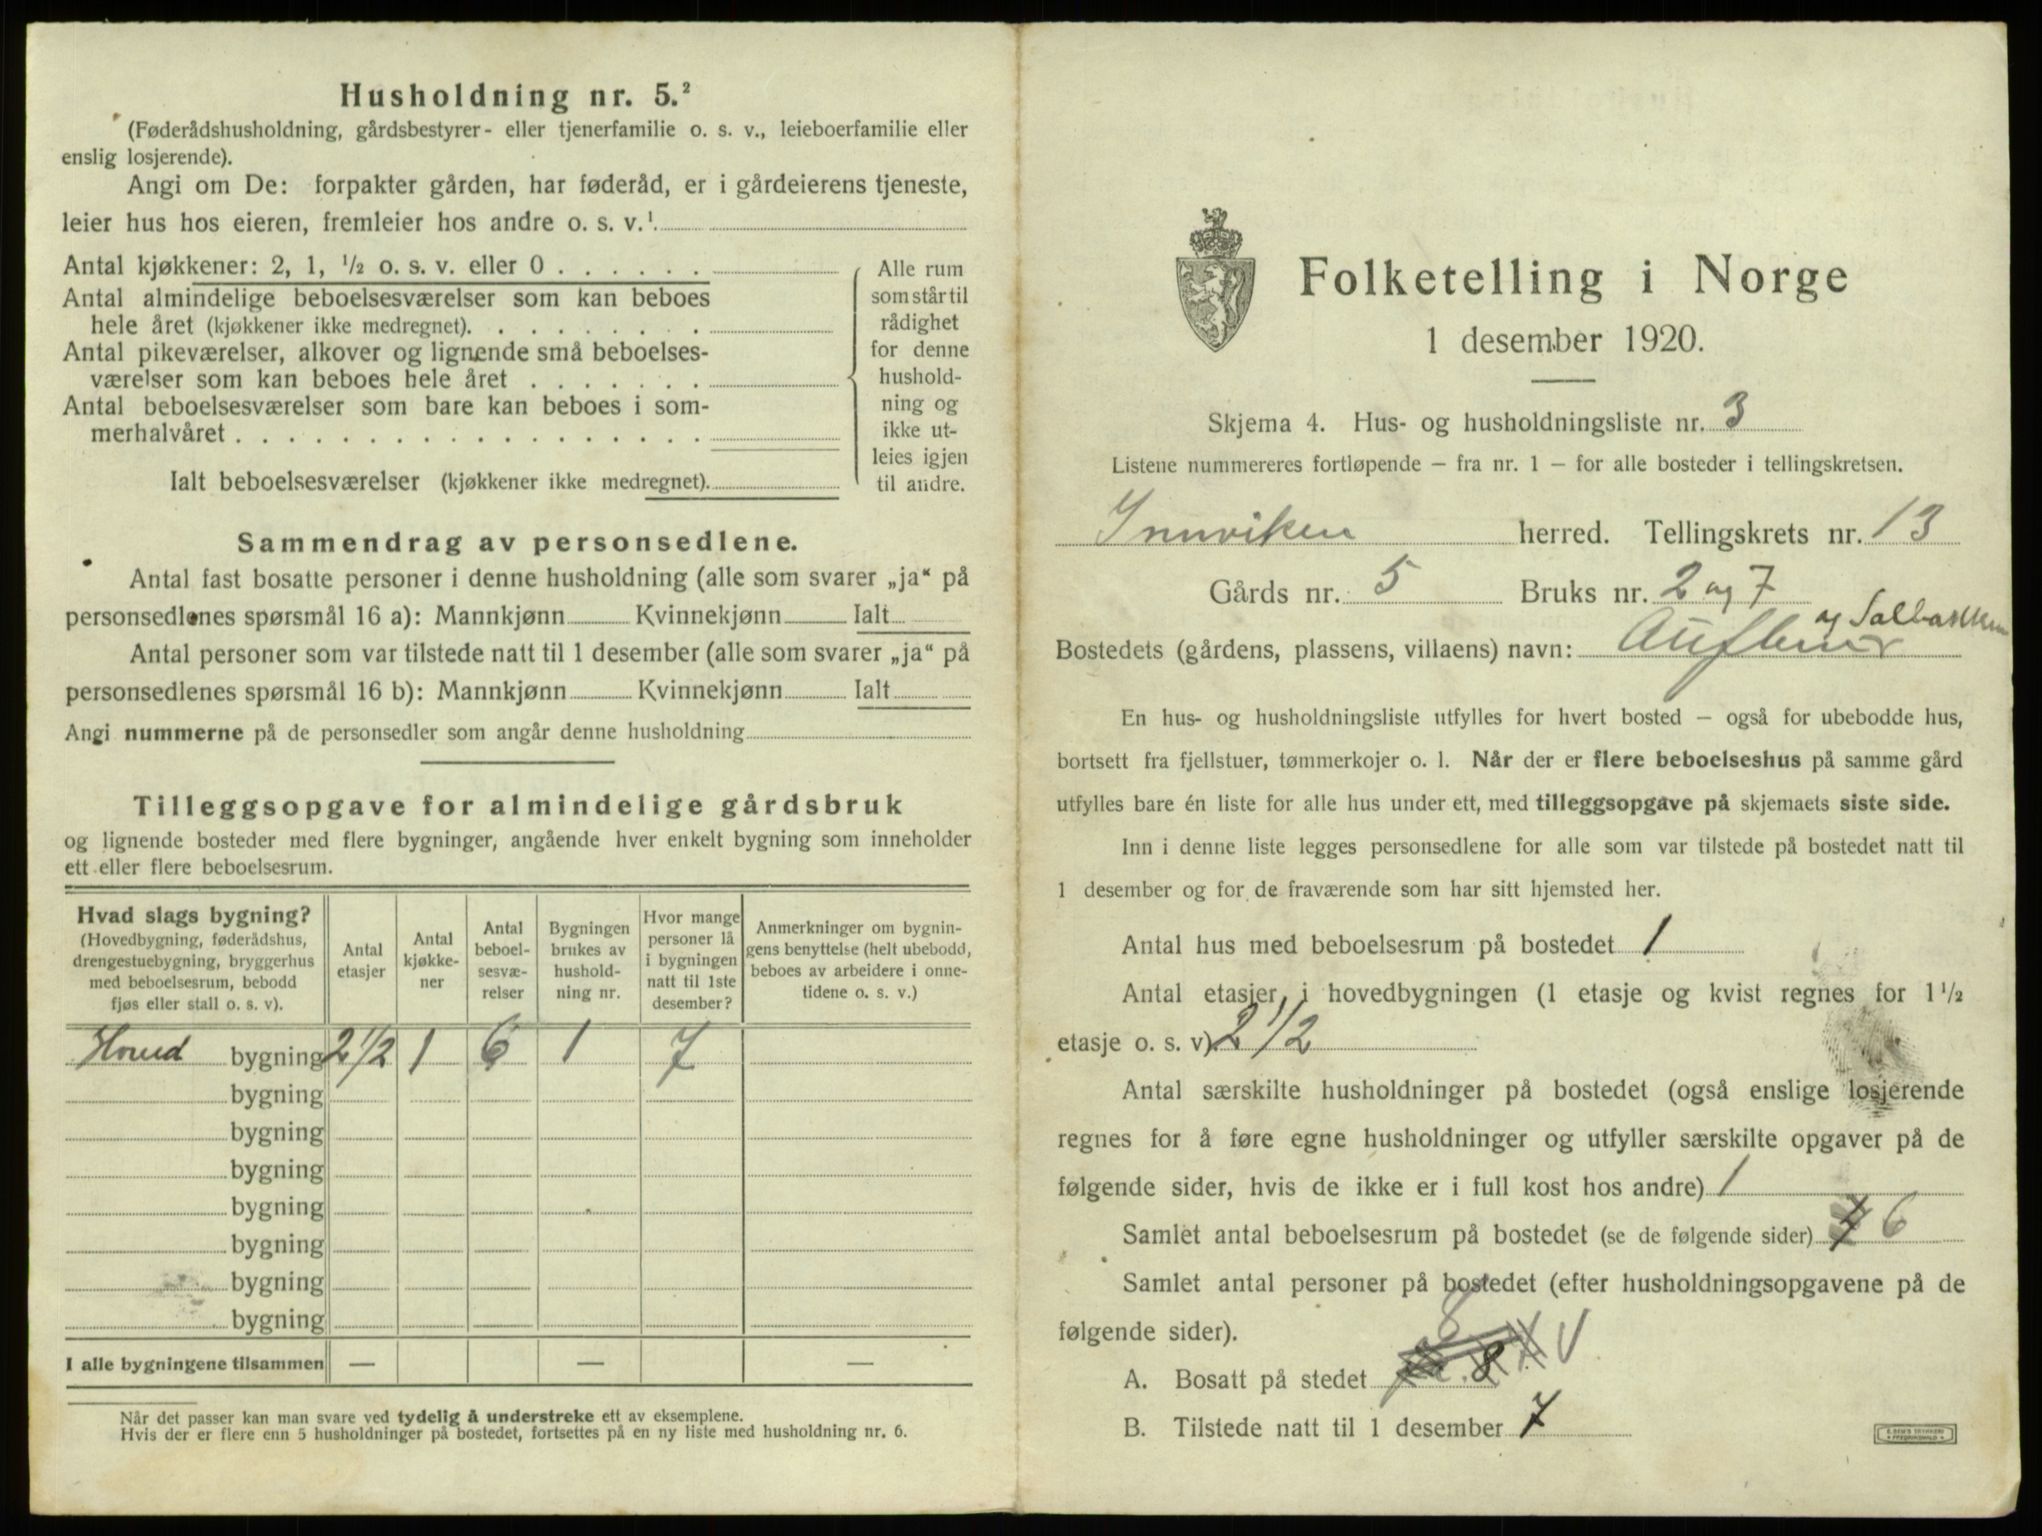 Husholdning nr. 5.²
(Føderådshusholdning, gårdsbestyrer- eller tjenerfamilie o. s. v., leieboerfamilie eller
enslig losjerende).
Angi om De: forpakter gården, har føderåd, er i gårdeierens tjeneste,
leier hus hos eieren, fremleier hos andre o. s. v.¹
Antal kjøkkener: 2, 1, ½ o. s. v. eller 0 . . . . . .
Antal almindelige beboelsesværelser som kan beboes
hele året (kjøkkener ikke medregnet). . . . . . . . .
Antal pikeværelser, alkover og lignende små beboelses-
værelser som kan beboes hele året . . . . . . .
Antal beboelsesværelser som bare kan beboes i som-
merhalvåret . . . . . . . . . . . . . . . . . .
Ialt beboelsesværelser (kjøkkener ikke medregnet)
Alle rum
som står til
rådighet
for denne
hushold-
ning og
ikke ut-
leies igjen
til andre.
Sammendrag av personsedlene.
Antal fast bosatte personer i denne husholdning (alle som svarer „ja“ på
personsedlenes spørsmål 16 a): Mannkjønn Kvinnekjønn Ialt
Antal personer som var tilstede natt til 1 desember (alle som svarer „ja“ på
personsedlenes spørsmål 16 b): Mannkjønn Kvinnekjønn Ialt
Angi nummerne på de personsedler som angår denne husholdning
Tilleggsopgave for almindelige gårdsbruk
og lignende bosteder med flere bygninger, angående hver enkelt bygning som inneholder
ett eller flere beboelsesrum.
Hvad slags bygning?
(Hovedbygning, føderådshus,
drengestuebygning, bryggerhus
med beboelsesrum, bebodd
fjøs eller stall o. s. v).
Antal
etasjer
Antal
kjøkke-
ner
Antal
beboel-
sesvæ-
relser
Bygningen
brukes av
hushold-
ning nr.
Hvor mange
personer lå
i bygningen
natt til 1ste
desember?
Anmerkninger om bygnin-
gens benyttelse (helt ubebodd,
beboes av arbeidere i onne-
tidene o. s. v.)
Hoved bygning 2½ 1 6 1 7
bygning
bygning
bygning
bygning
bygning
bygning
bygning
I alle bygningene tilsammen — — —
Når det passer kan man svare ved tydelig å understreke ett av eksemplene.
Hvis der er flere enn 5 husholdninger på bostedet, fortsettes på en ny liste med husholdning nr. 6.
Folketelling i Norge
1 desember 1920.
Skjema 4. Hus- og husholdningsliste nr. 3
Listene nummereres fortløpende — fra nr. 1 — for alle bosteder i tellingskretsen.
Innviken herred. Tellingskrets nr. 13
Gårds nr. 5 Bruks nr. 2 og 7
og Solbakken
Bostedets (gårdens, plassens, villaens) navn:
En hus- og husholdningsliste utfylles for hvert bosted — også for ubebodde hus,
bortsett fra fjellstuer, tømmerkojer o. l. Når der er flere beboelseshus på samme gård
utfylles bare én liste for alle hus under ett, med tilleggsopgave på skjemaets siste side.
Inn i denne liste legges personsedlene for alle som var tilstede på bostedet natt til
1 desember og for de fraværende som har sitt hjemsted her.
Antal hus med beboelsesrum på bostedet 1
Antal etasjer i hovedbygningen (1 etasje og kvist regnes for 1½
etasje o. s. v) 2½
Antal særskilte husholdninger på bostedet (også enslige losjerende
regnes for å føre egne husholdninger og utfyller særskilte opgaver på de
følgende sider, hvis de ikke er i full kost hos andre) 1
Samlet antal beboelsesrum på bostedet (se de følgende sider) 6
Samlet antal personer på bostedet (efter husholdningsopgavene på de
følgende sider).
8
A. Bosatt på stedet 8
B. Tilstede natt til 1 desember 7